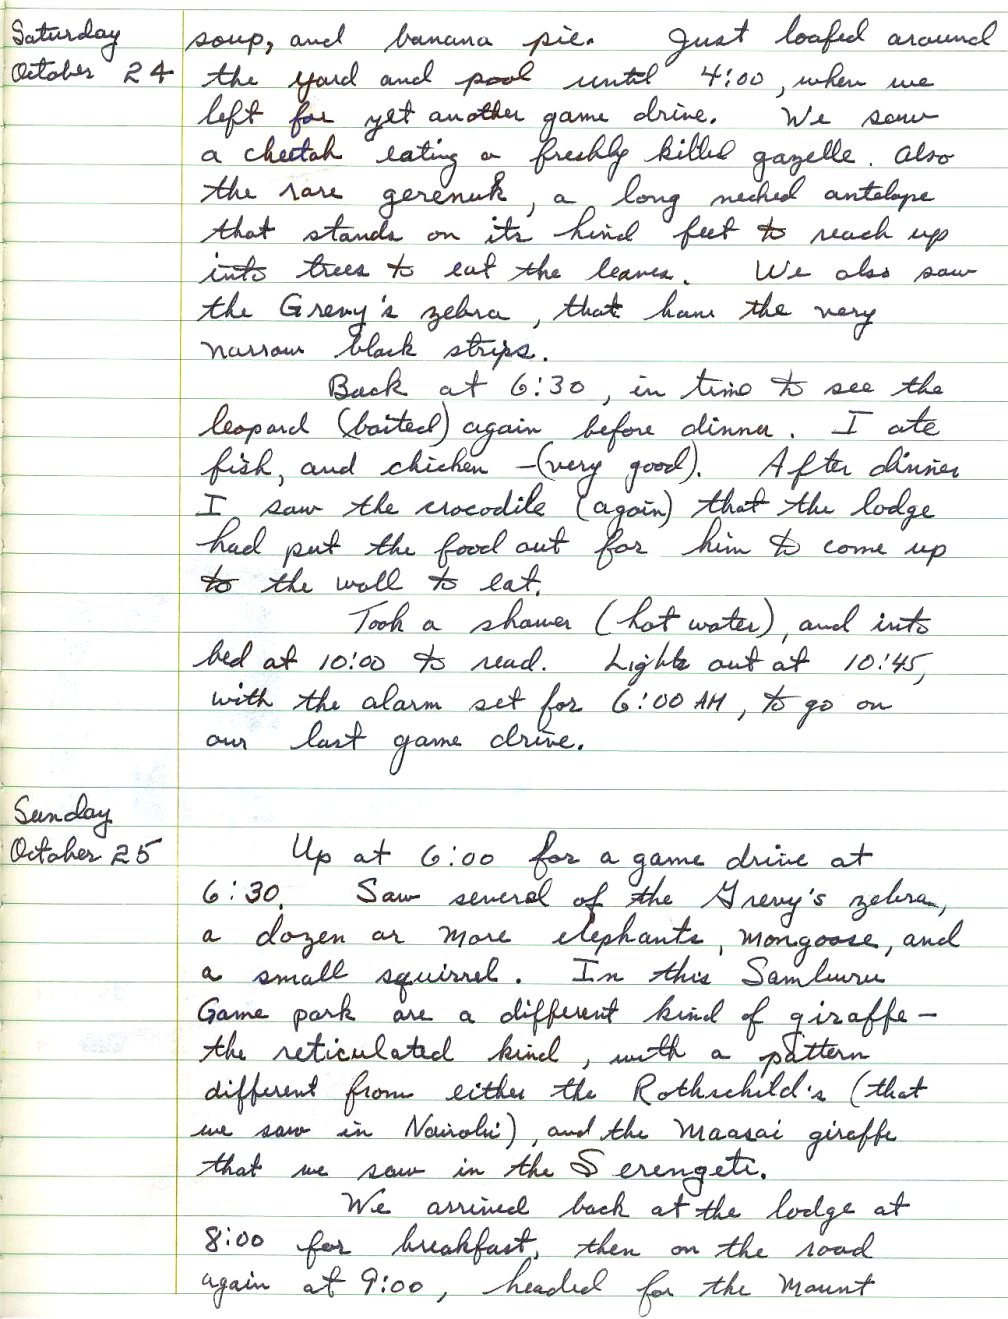 Saturday
October 24
soup, and banana pie. Just loafed around
the yard and pool until 4:00, when we
left for yet another game drive. We saw
a cheetah eating a freshly killed gazelle. Also
the rare gerenuk, a long necked antelope
that stands on its hind feet to reach up
into trees to eat the leaves. We also saw
the Grevy's zebra, that have the very
narrow black strips.
Back at 6:30, in time to see the
leopard (baited) again before dinner. I ate
fish, and chicken - (very good). After dinner
I saw the crocodile (again) that the lodge
had put the food out for him to come up
to the wall to eat.
Took a shower (hot water), and into
bed at 10:00 to read. Lights out at 10:45,
with the alarm set for 6:00 AM, to go on
our last game drive.
Sunday
October 25
Up at 6:00 for a game drive at
6:30. Saw several of the Grevy's zebra,
a dozen or more elephants, mongoose, and
a small squirrel. In this Samburu
Game park are a different kind of giraffe -
the reticulated kind, with a pattern
different from either the Rothschild's (that
we saw in Nairobi), and the Maasai giraffe
that we saw in the Serengeti.
We arrived back at the lodge at
8:00 for breakfast, then on the road
again at 9:00, headed for the Mount